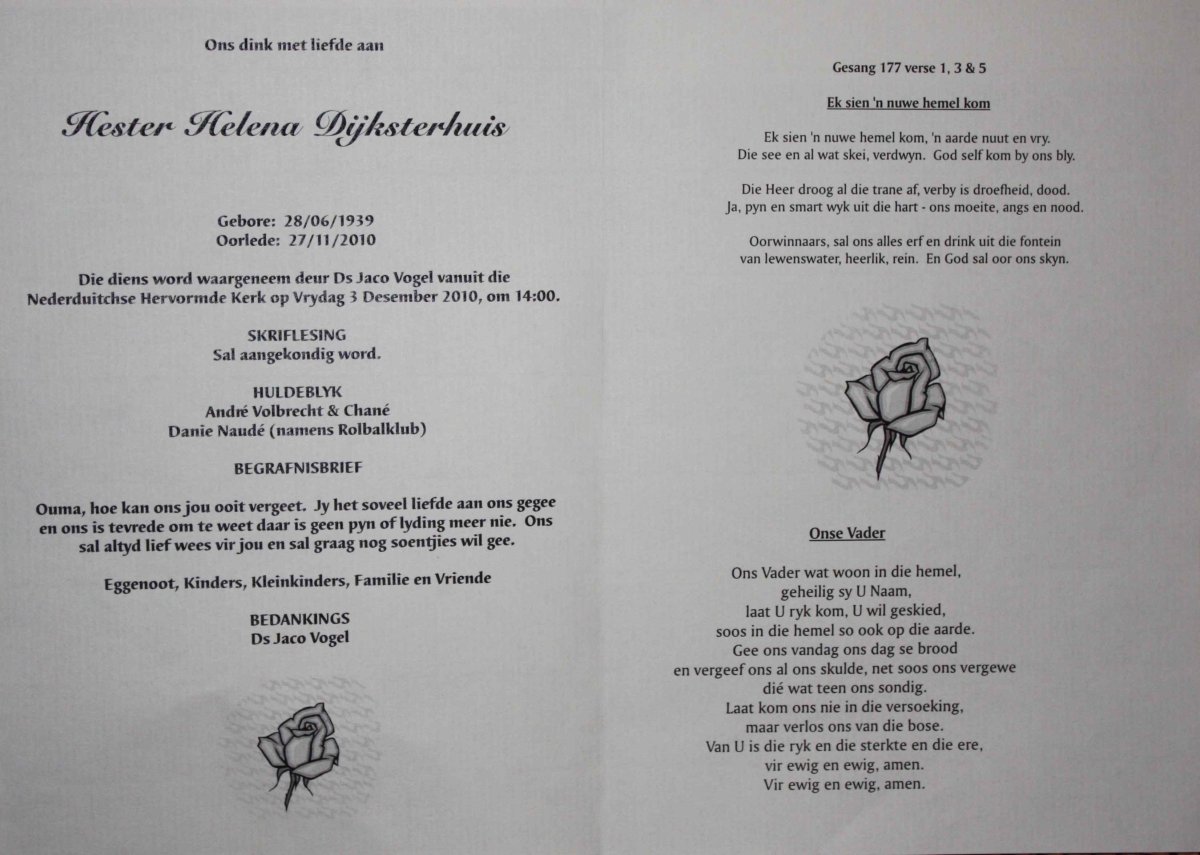 Ons dink met liefde aan
Hester Helena Dijksterhuis
Gebore: 28/06/1939
Oorlede: 27/11/2010
Die diens word waargeneem deur Ds Jaco Vogel vanuit die
Nederduitchse Hervormde Kerk op Vrydag 3 Desember 2010, om 14:00.
SKRIFLESING
Sal aangekondig word.
HULDEBLYK
André Volbrecht & Chané
Danie Naudé (namens Rolbalklub)
BEGRAFNISBRIEF
Ouma, hoe kan ons jou ooit vergeet. Jy het soveel liefde aan ons gegee
en ons is tevrede om te weet daar is geen pyn of lyding meer nie. Ons
sal altyd lief wees vir jou en sal graag nog soentjies wil gee.
Eggenoot, Kinders, Kleinkinders, Familie en Vriende
BEDANKINGS
Ds Jaco Vogel
Gesang 177 verse 1, 3 & 5
Ek sien 'n nuwe hemel kom
Ek sien 'n nuwe hemel kom, 'n aarde nuut en vry.
Die see en al wat skei, verdwyn. God self kom by ons bly.
Die Heer droog al die trane af, verby is droefheid, dood.
Ja, pyn en smart wyk uit die hart - ons moeite, angs en nood.
Oorwinnaars, sal ons alles erf en drink uit die fontein
van lewenswater, heerlik, rein. En God sal oor ons skyn.
Onse Vader
Ons Vader wat woon in die hemel,
geheilig sy U Naam,
laat U ryk kom, U wil geskied,
soos in die hemel so ook op die aarde.
Gee ons vandag ons dag se brood
en vergeef ons al ons skulde, net soos ons vergewe
dié wat teen ons sondig.
Laat kom ons nie in die versoeking,
maar verlos ons van die bose.
Van U is die ryk en die sterkte en die ere,
vir ewig en ewig, amen.
Vir ewig en ewig, amen.